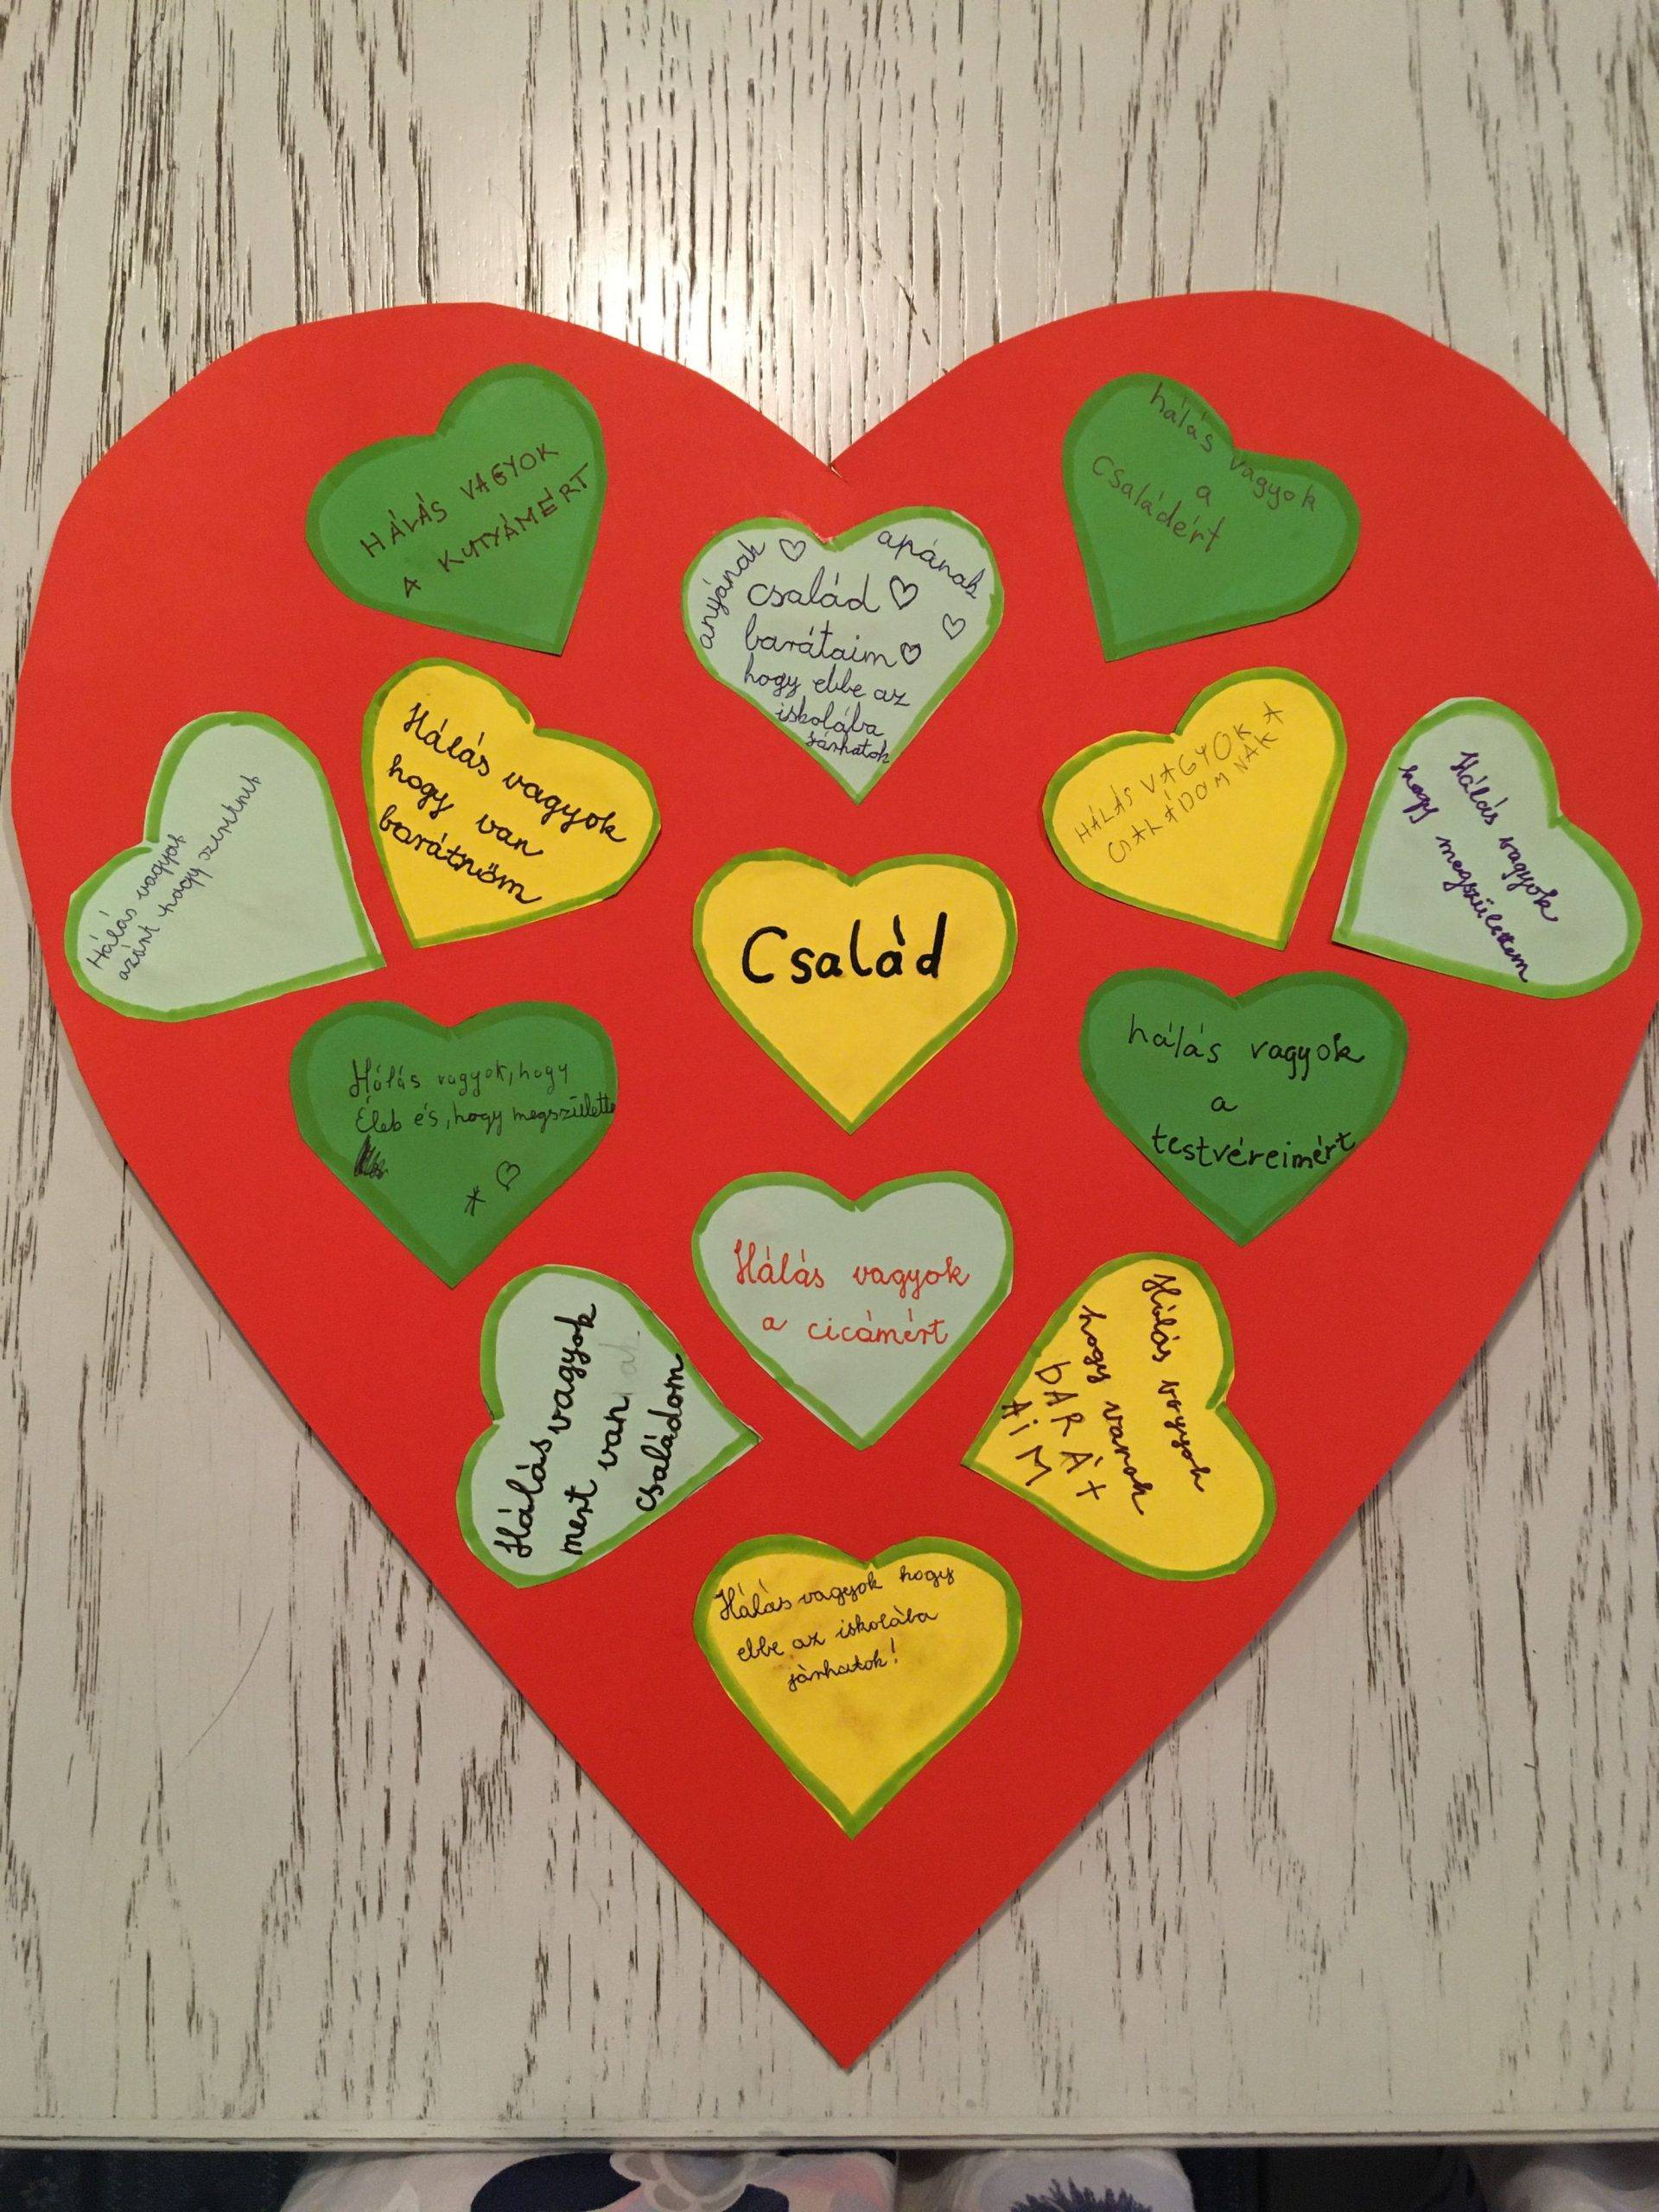 HÁLÁS VAGYOK
A KUTYÁMÉRT
hálás vagyok
a
családért
anyának
apának
család
barátaim
hogy ebbe az
iskolába
járhatok
Hálás vagyok
azért hogy szeretnek
Hálás vagyok
hogy van
barátnőm
HÁLÁS VAGYOK
CSALÁDOMNAK
Hálás vagyok
hogy megszülettem
Család
Hálás vagyok, hogy
Élek és, hogy megszülette
hálás vagyok
a
testvéreimért
Hálás vagyok
a cicámért
Hálás vagyok
mert van
családom
Hálás vagyok
hogy vanak
bARÁt
AiM
Hálás vagyok hogy
ebbe az iskolába
járhatok!